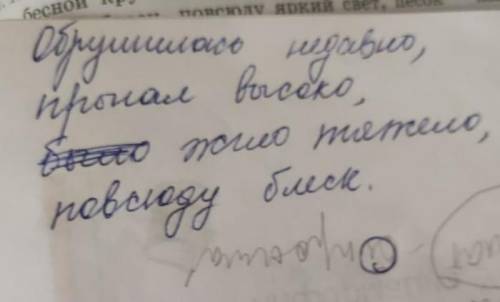 бесной кру
повсюду яркий свет, песок
Обрушилась недавно,
прыгал высоко,
было жило тяжело,
повсюду блеск.